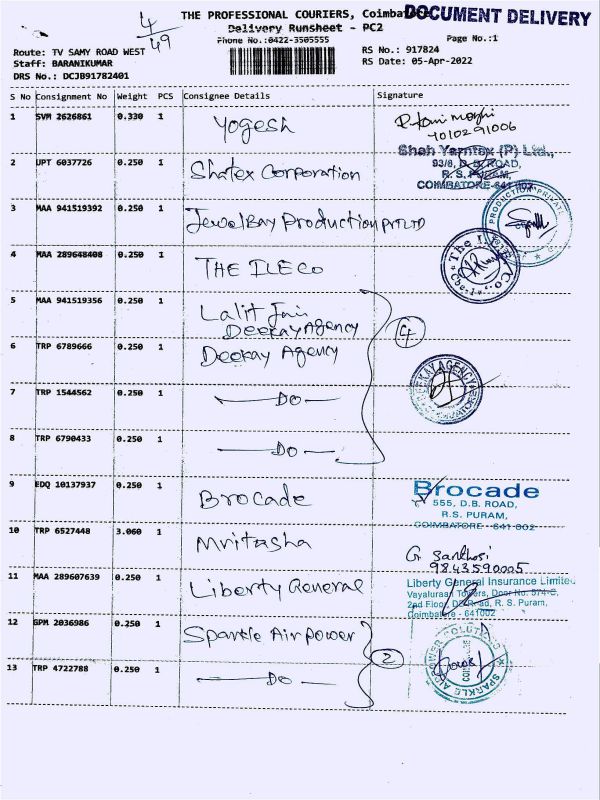 4/49
THE PROFESSIONAL COURIERS, Coimbatore
DOCUMENT DELIVERY
Delivery Runsheet - PC2
Phone No.:0422-3505555
Page No.:1
Route: TV SAMY ROAD WEST
RS No.: 917824
Staff: BARANIKUMAR
RS Date: 05-Apr-2022
DRS No.: DCJB91782401
S No Consignment No Weight PCS Consignee Details Signature
1 SVM 2626861 0.330 1 Yogesh
7010291006
2 UPT 6037726 0.250 1 Shatex Corporation
Shah Yarntex (P) Ltd.,
93/6, D. B. ROAD,
R. S. PURAM,
COIMBATORE-641 002
3 MAA 941519392 0.250 1 JewelBay Production PVT LTD
PRODUCTION PRIVATE
4 MAA 289648408 0.250 1 THE ILECO
5 MAA 941519356 0.250 1 Lalit Jain
Deekay Agency
4
6 TRP 6789666 0.250 1 Deekay Agency
DEEKAY AGENCY
COIMBATORE
7 TRP 1544562 0.250 1 —DO—
8 TRP 6790433 0.250 1 —DO—
9 EDQ 10137937 0.250 1 Brocade
Brocade
555, D.B. ROAD,
R.S. PURAM,
COIMBATORE - 641 002
10 TRP 6527448 3.060 1 Mritasha
G. Santhosi
9843590005
11 MAA 289607639 0.250 1 Liberty General
Liberty General Insurance Limited
Vayaluraan Towers, Door No. 574-C,
2nd Floor, DB Road, R. S. Puram,
Coimbatore - 641002
12 GPM 2036986 0.250 1 Sparkle Airpower
2
SPARKLE AIRPOWER SOLUTIONS
13 TRP 4722788 0.250 1 —DO—